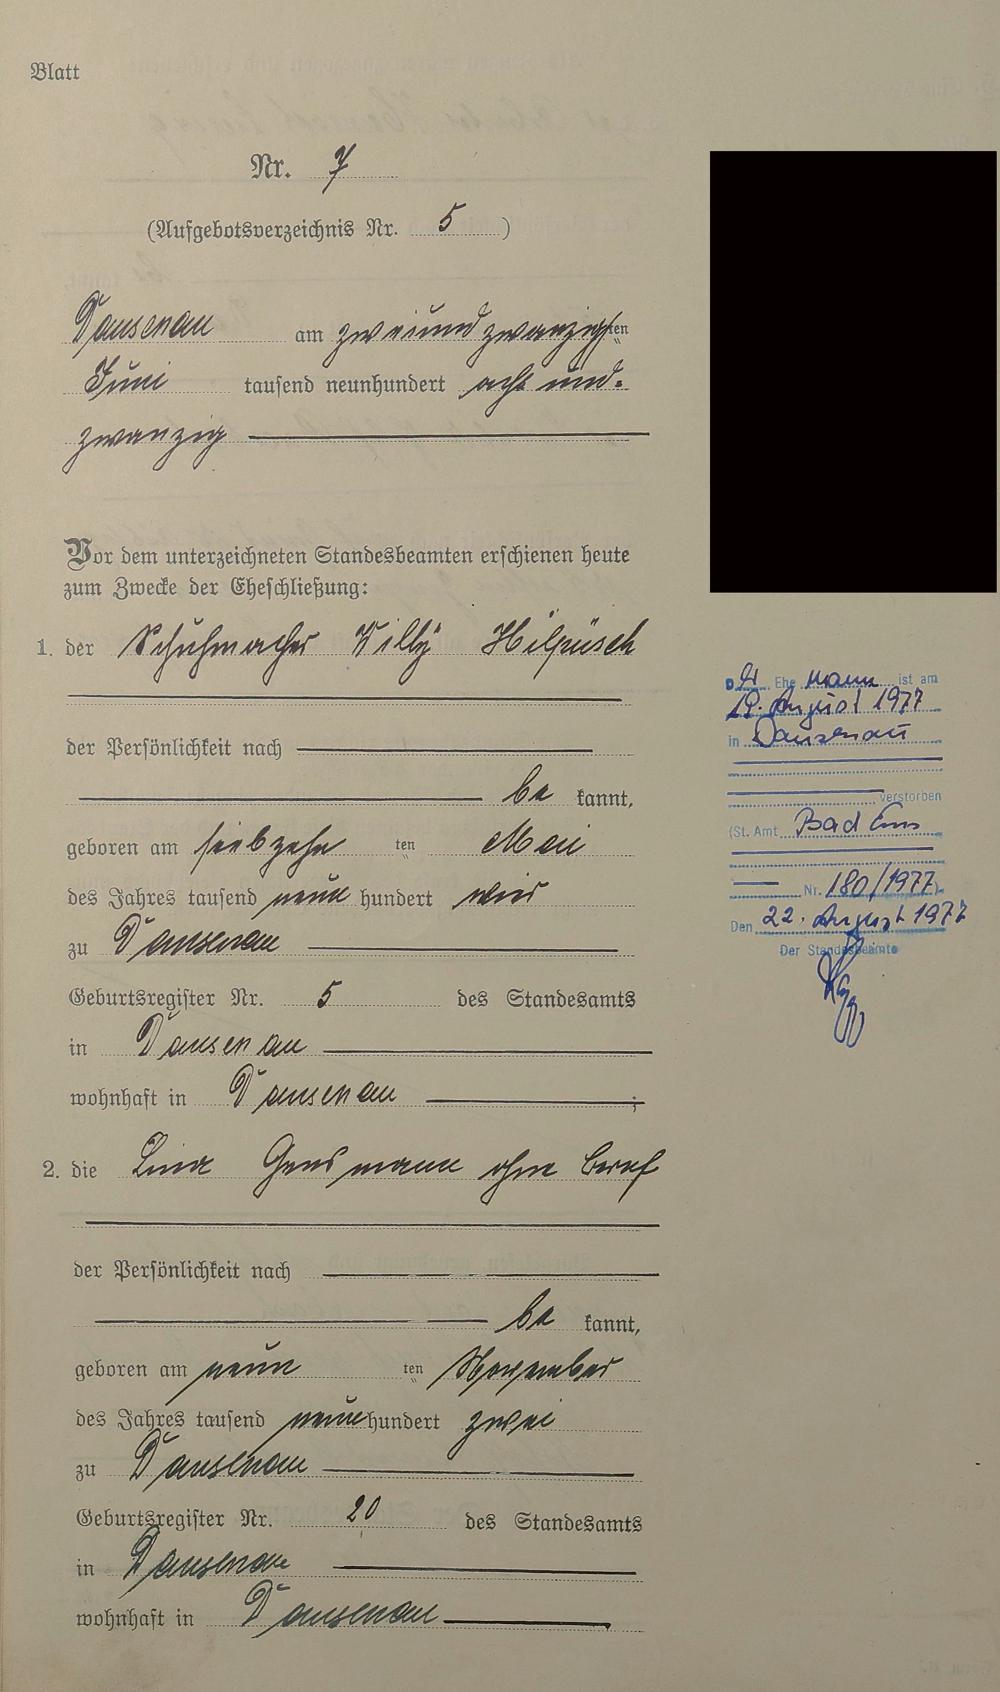 Blatt
Nr. 7
(Aufgebotsverzeichnis Nr. 5 )
Dausenau am zweiundzwanzigsten
Juni tausend neunhundert acht und-
zwanzig
Vor dem unterzeichneten Standesbeamten erschienen heute
zum Zwecke der Eheschließung:
1. der Schuhmacher Willy Hilpüsch
der Persönlichkeit nach
be kannt,
geboren am siebzehn ten Mai
des Jahres tausend neun hundert vier
zu Dausenau
Geburtsregister Nr. 5 des Standesamts
in Dausenau
wohnhaft in Dausenau ;
2. die Lina ohne Beruf
der Persönlichkeit nach
be kannt,
geboren am neun ten November
des Jahres tausend neun hundert zwei
zu Dausenau
Geburtsregister Nr. 20 des Standesamts
in Dausenau
wohnhaft in Dausenau
Der Ehe mann ist am
19. August 1977
in Dausenau
verstorben
(St. Amt Bad Ems
Nr. 180/1977).
Den 22. August 1977
Der Standesbeamte